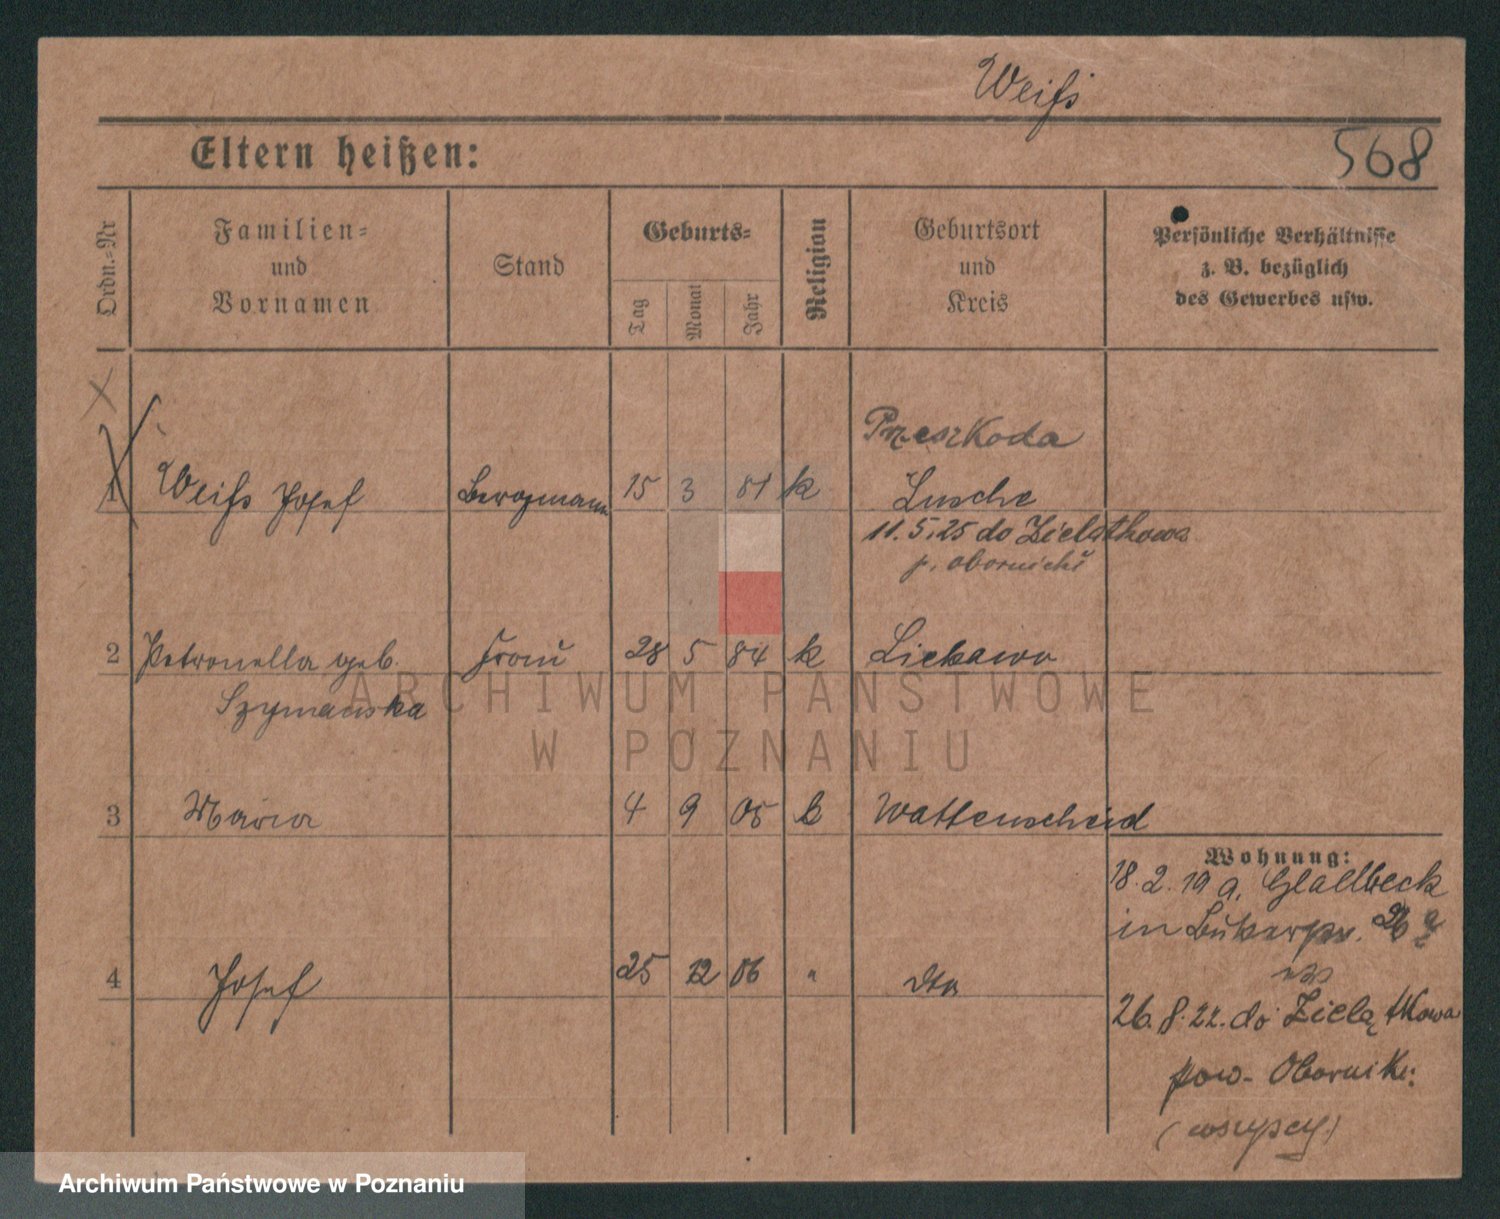 Weiß
Eltern heißen:
568
Ordn.=Nr
Familien=
und
Vornamen
Stand
Geburts=
Tag
Monat
Jahr
Religion
Geburtsort
und
Kreis
Persönliche Verhältnisse
z. B. bezüglich
des Gewerbes usw.
Przeszkoda
1 Weiß Josef Bergmann 15 3 81 k Lusche
11.5.25 do Zielątkowa
p. obornicki
2 Petronella geb. Frau 28 5 84 k
Szymańska
3 Maria 4 9 05 k Wattenscheid
Wohnung:
18.2.19 a. Gladbeck
in
4 Josef 25 12 06 " dto
26.8.22. do Zielątkowa
pow. Oborniki
(wszyscy)
ARCHIWUM PAŃSTWOWE
W POZNANIU
Archiwum Państwowe w Poznaniu